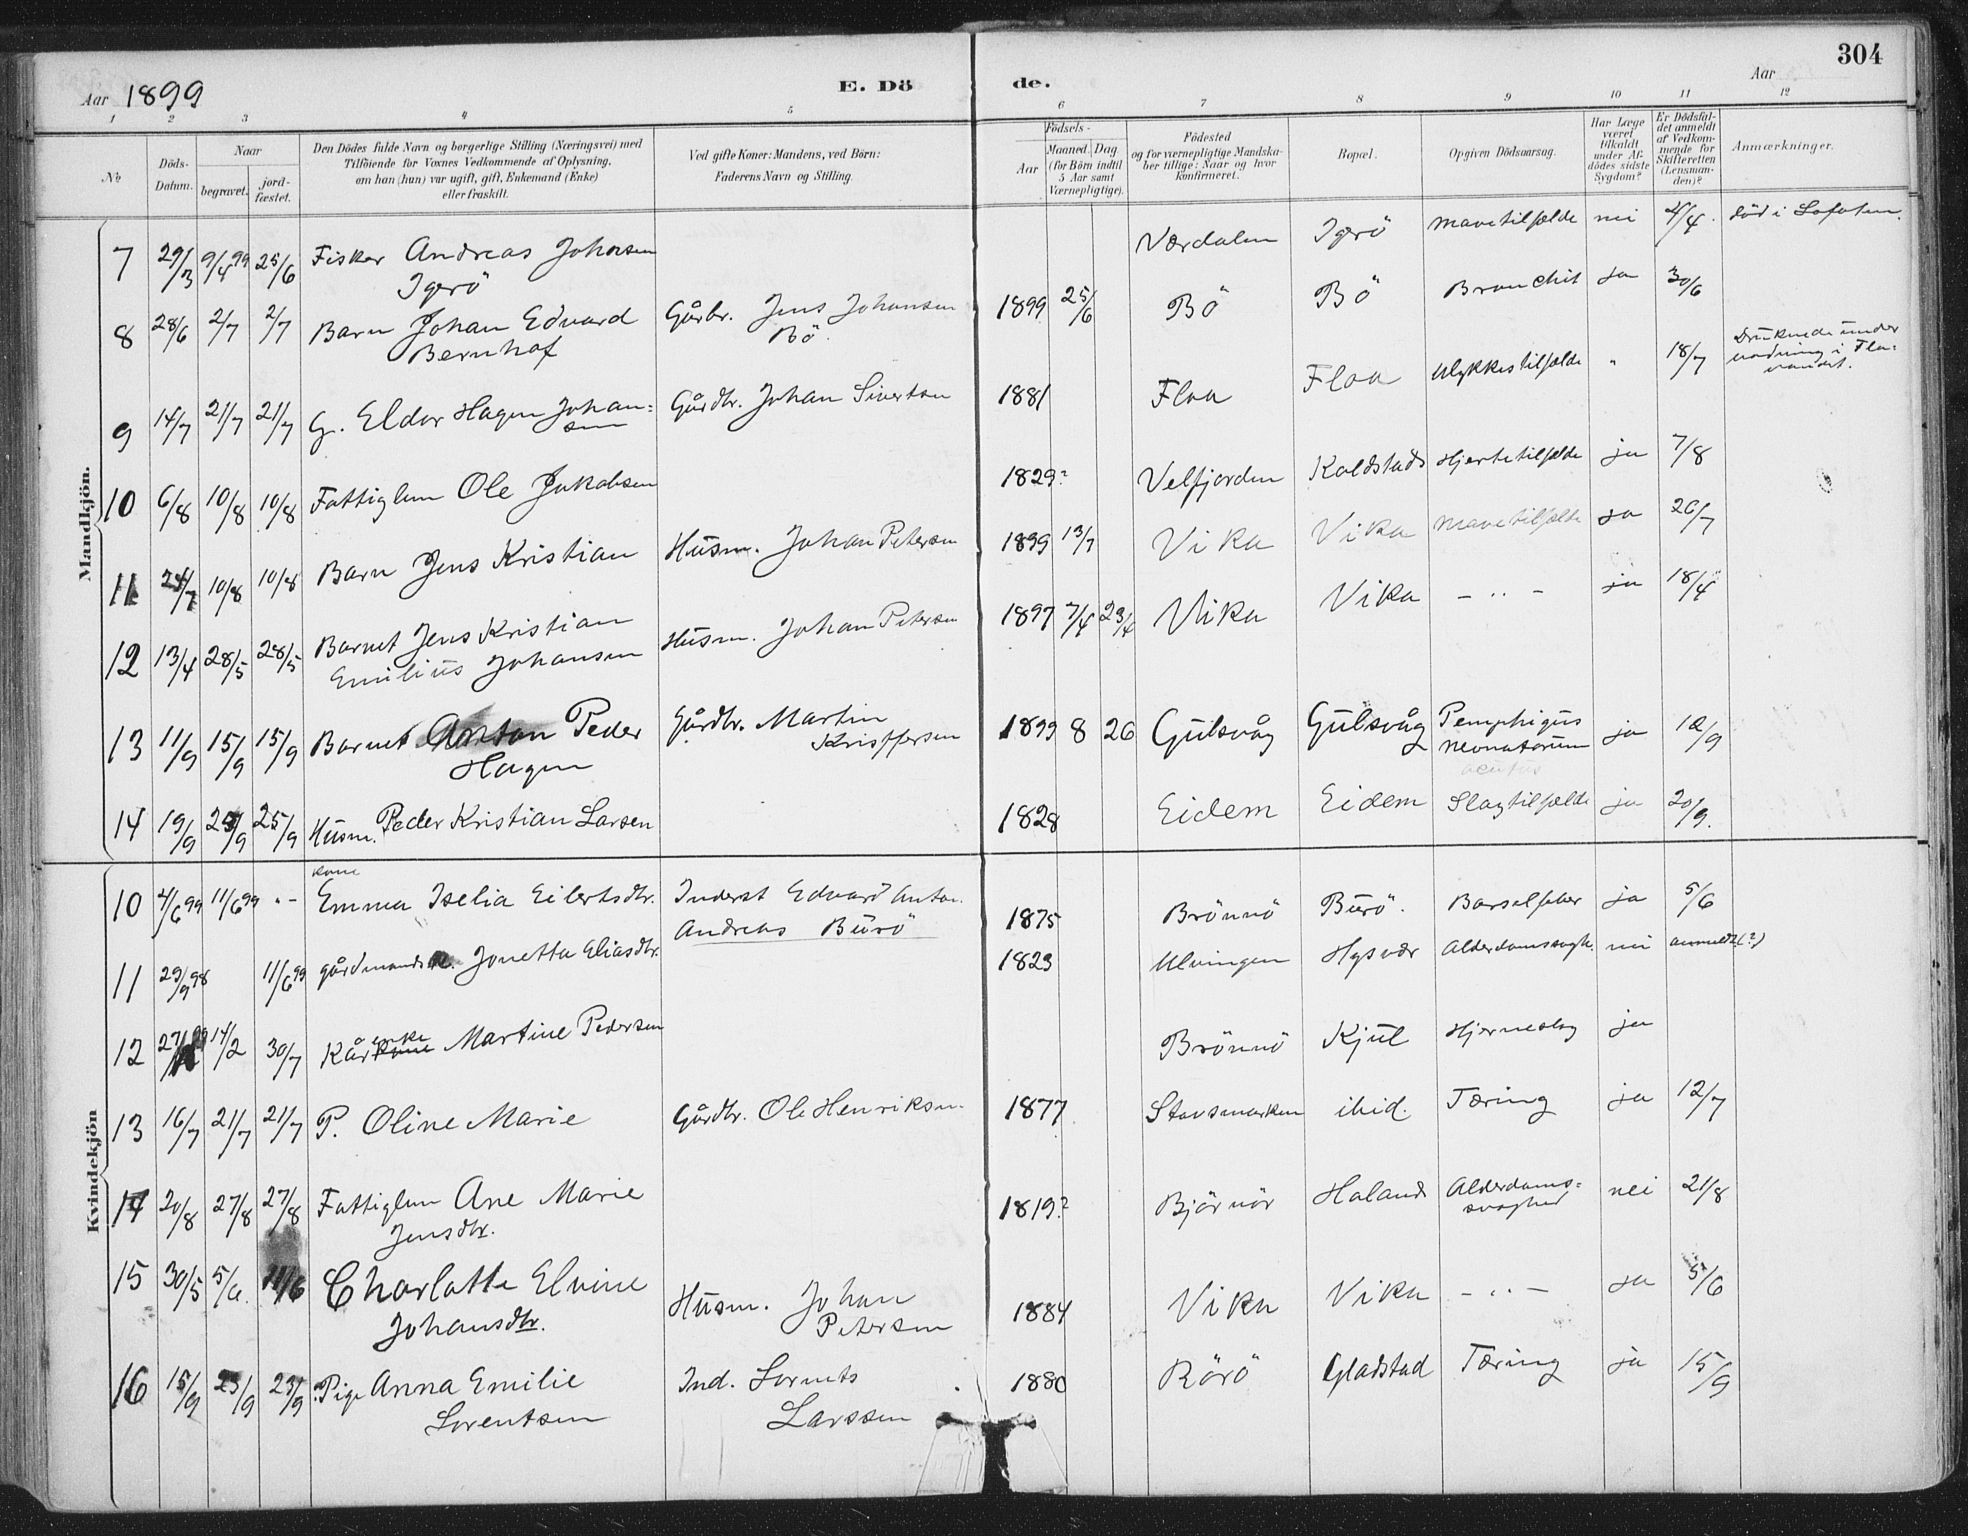 304
Aar 1899
E. Dö
de.
Aar
1 2 3 4 5 6 7 8 9 10 11 12
No
Döds-Datum.
Naar
begravet.
jord-fæstet.
Den Dödes fulde Navn og borgerlige Stilling (Næringsvei) med
Tilföiende for Voxnes Vedkommende af Oplysning,
om han (hun) var ugift, gift, Enkemand (Enke)
eller fraskilt.
Ved gifte Koner: Mandens, ved Börn:
Faderens Navn og Stilling.
Födsels-
Aar
Maaned. Dag
(for Börn indtil
5 Aar samt
Værnepligtige).
Födested
og for værnepligtige Mandska-
ber tillige: Naar og hvor
konfirmeret.
Bopæl.
Opgiven Dödsaarsag.
Har Læge
været
tilkaldt
under Af-
dödes sidste
Sygdom?
Er Dödsfal-
det anmeldt
af Vedkom-
mende for
Skifteretten
(Lensman-
den)?
Anmærkninger.
Mandkjön.
7 29/3 9/4 99 25/6 Fisker Andreas Johnsen Værdalen Igerö Mavetilfælde nei 4/4. död i Lofoten.
Igerö
8 28/6 2/7 2/7 Barn Johan Edvard Gårbr. Jens Johansen 1899 25/6 Bö Bö Bronchit ja 30/6
Bernhof Bö.
9 14/7 21/7 21/7 G. Eldor Hagen Johan= Gårdbr. Johan Sivertsen 1881 Floa Floa Ulykkestilfælde " 18/7 Druknede under
sen
vadning i Flo-
vandet.
10 6/8 10/8 10/8 Fattiglem Ole Jakobsen 1829? Velfjorden Koldstads Hjertetilfælde ja 7/8
11 24/7 10/8 10/8 Barn Jens Kristian Husm. Johan Petersen 1899 13/7 Vika Vika Mavetilfælde ja 26/7
12 13/4 28/5 28/5 Barnet Jens Kristian Husm. Johan Petersen 1897 7/4 23/4 Vika Vika - " - ja 18/4
Emilius Johansen
13 11/9 15/9 15/9 Barnet Anton Peder Gårdbr. Martin 1899 8 26 Gulsvåg Gulsvåg Pemphigus ja 12/9
Hagen Kristffersen neonatorum
acutus
14 19/9 25/9 25/9 Husm. Peder Kristian Larsen 1828 Eidem Eidem Slagtilfælde ja 20/9.
Kvindekjön
kone
10 4/6 99 11/6 99 " - Emma Iselia Eilertsdtr. Inderst Edvard Anton 1875 Brönnö Burö. Barselfeber ja 5/6
Andreas Burö
11 29/9 98 11/6 99 gårdmands Jonetta Eliasdtr. 1823 Ulvingen Hysvær Alderdomssvagh. nei anmeldt(?)
12 27/ 99 14/2 30/7 Kårkone enke Martine Pedersen Brönnö Kjul Hjerneslag ja
13 16/7 21/7 21/7 P. Oline Marie Gårdbr. Ole Henriksen 1877 Stavsmarken ibid. Tæring ja 12/7
14 20/8 27/8 27/8 Fattiglem Ane Marie 1819? Björnör Holand Alderdoms= nei 21/8
Jensdtr. svaghed
15 30/5 5/6. 11/6 Charlotte Elvine Husm. Johan 1884 Vika Vika - " - ja 5/6
Johansdtr. Petersen
16 15/9 23/9 23/9 Pige Anna Emilie Ind. Lorents 1880 Rörö Gladstad Tæring ja 15/9
Lorentsen Larssen